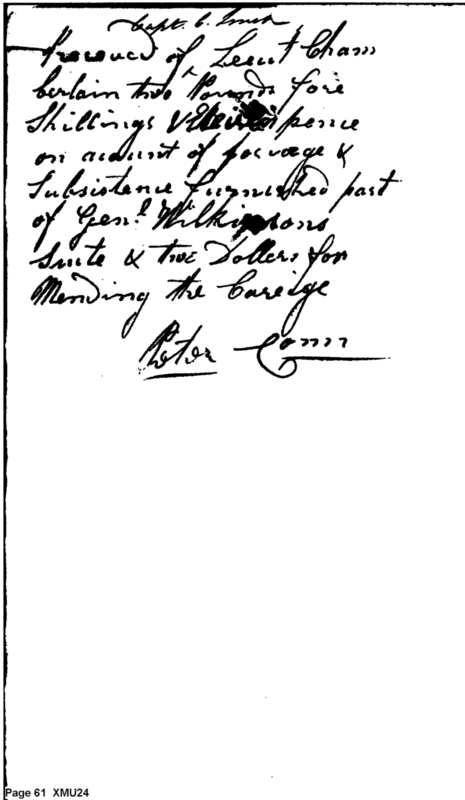 Capt. C. Smith
Receved of Leeut Cham
berlain two Pounds fore
Shillings & Eleven pence
on acount of forage &
Subsistence furnished part
of Genl. Wilkinsons
Suite & two Dollers for
Mending the Careige
Peter Conn
Page 61 XMU24